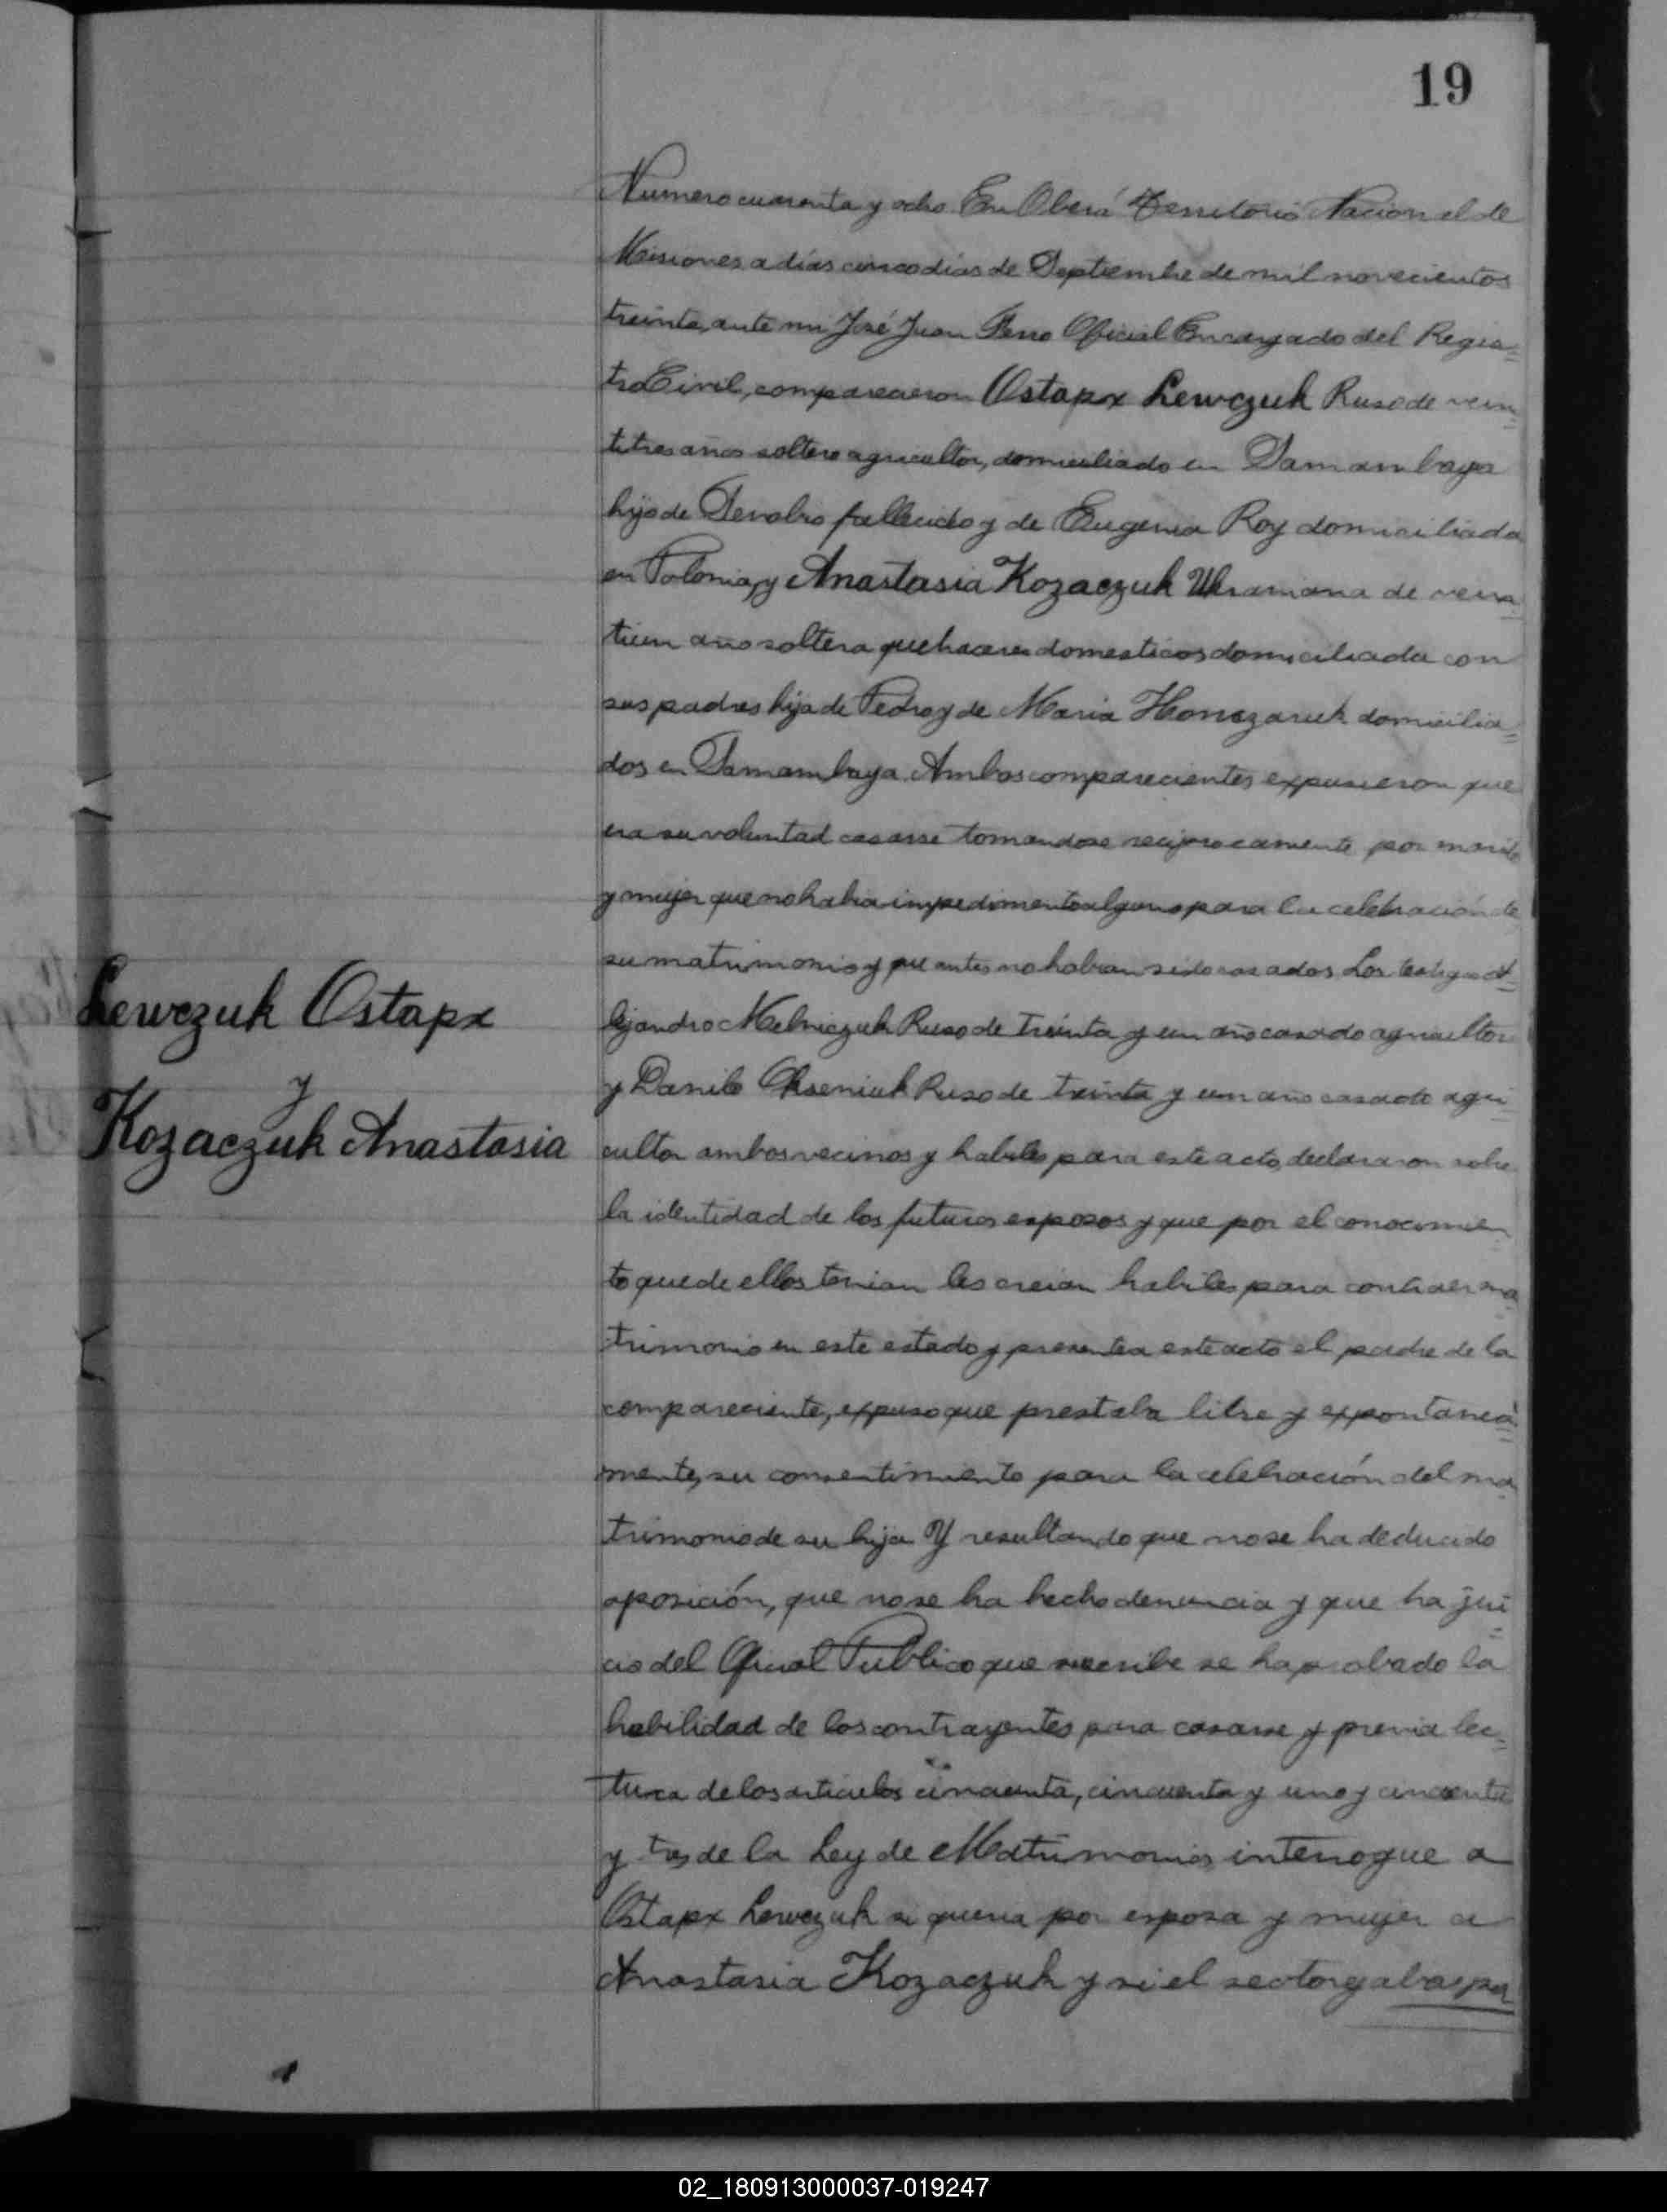 19
Numero cuarenta y ocho En Oberá Territorio Nacional de
Misiones a días cinco días de Septiembre de mil novecientos
treinta, ante mi José Juan Ferro Oficial Encargado del Regis=
tro Civil, comparecieron Ostapx Lewczuk Ruso de vein=
titres años soltero agricultor, domiciliado en Samambaya
hijo de fallecido y de Eugenia Roy domiciliada
en Polonia, y Anastasia Kozaczuk Ukraniana de vein=
tiun año soltera quehaceres domesticos domiciliada con
sus padres hija de Pedro y de Maria Honczaruk domicilia=
dos en Samambaya. Ambos comparecientes expusieron que
era su voluntad casarse tomandose reciprocamente por marido
y mujer que no habia impedimento alguno para la celebración de
su matrimonio y que antes no habian sido casados Los testigos A=
lejandro Melniczuk Ruso de treinta y un año casado agricultor
y Danilo Okseniuk Ruso de treinta y un año casado agri=
cultor ambos vecinos y habiles para este acto, declararon sobre
la identidad de los futuros esposos y que por el conocimien
to que de ellos tenian les creian habiles para contraer ma
trimonio en este estado y presente a este acto el padre de la
compareciente, expuso que prestaba libre y expontaneá=
mente, su consentimiento para la celebración del ma
trimonio de su hija Y resultando que no se ha deducido
oposición, que no se ha hecho denuncia y que ha jui=
cio del Oficial Publico que suscribe se ha probado la
habilidad de los contrayentes para casarse y previa lec=
tura de los articulos cincuenta, cincuenta y uno y cincuenta
y tres de la Ley de Matrimonios, interrogue a
Ostapx Lewczuk si queria por esposa y mujer a
Anastasia Kozaczuk y si el se otorgaba por
Lewczuk Ostapx
y
Kozaczuk Anastasia
02_180913000037-019247